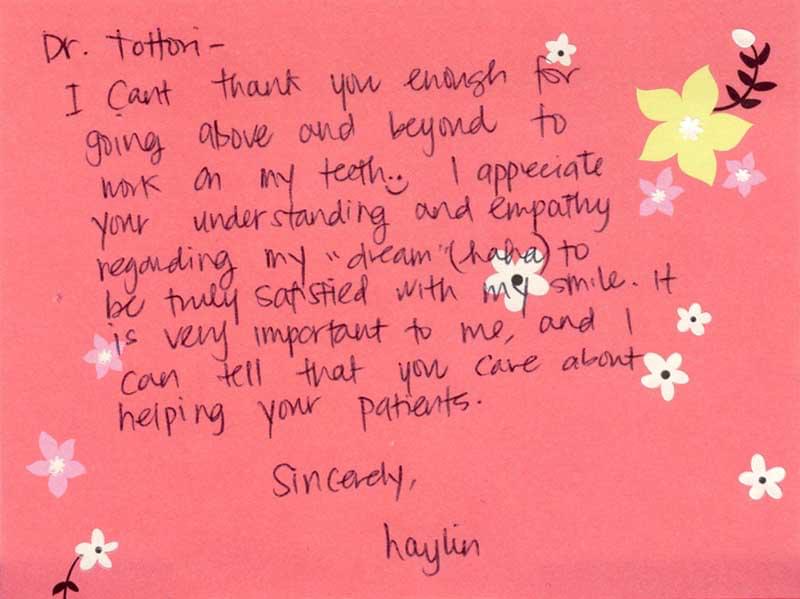 Dr. Tottori -
I Cant thank you enough for
going above and beyond to
work on my teeth. I appreciate
your understanding and empathy
regarding my "dream" (haha) to
be truly satisfied with my smile. It
is very important to me, and I
can tell that you care about
helping your patients.
Sincerely,
haylin